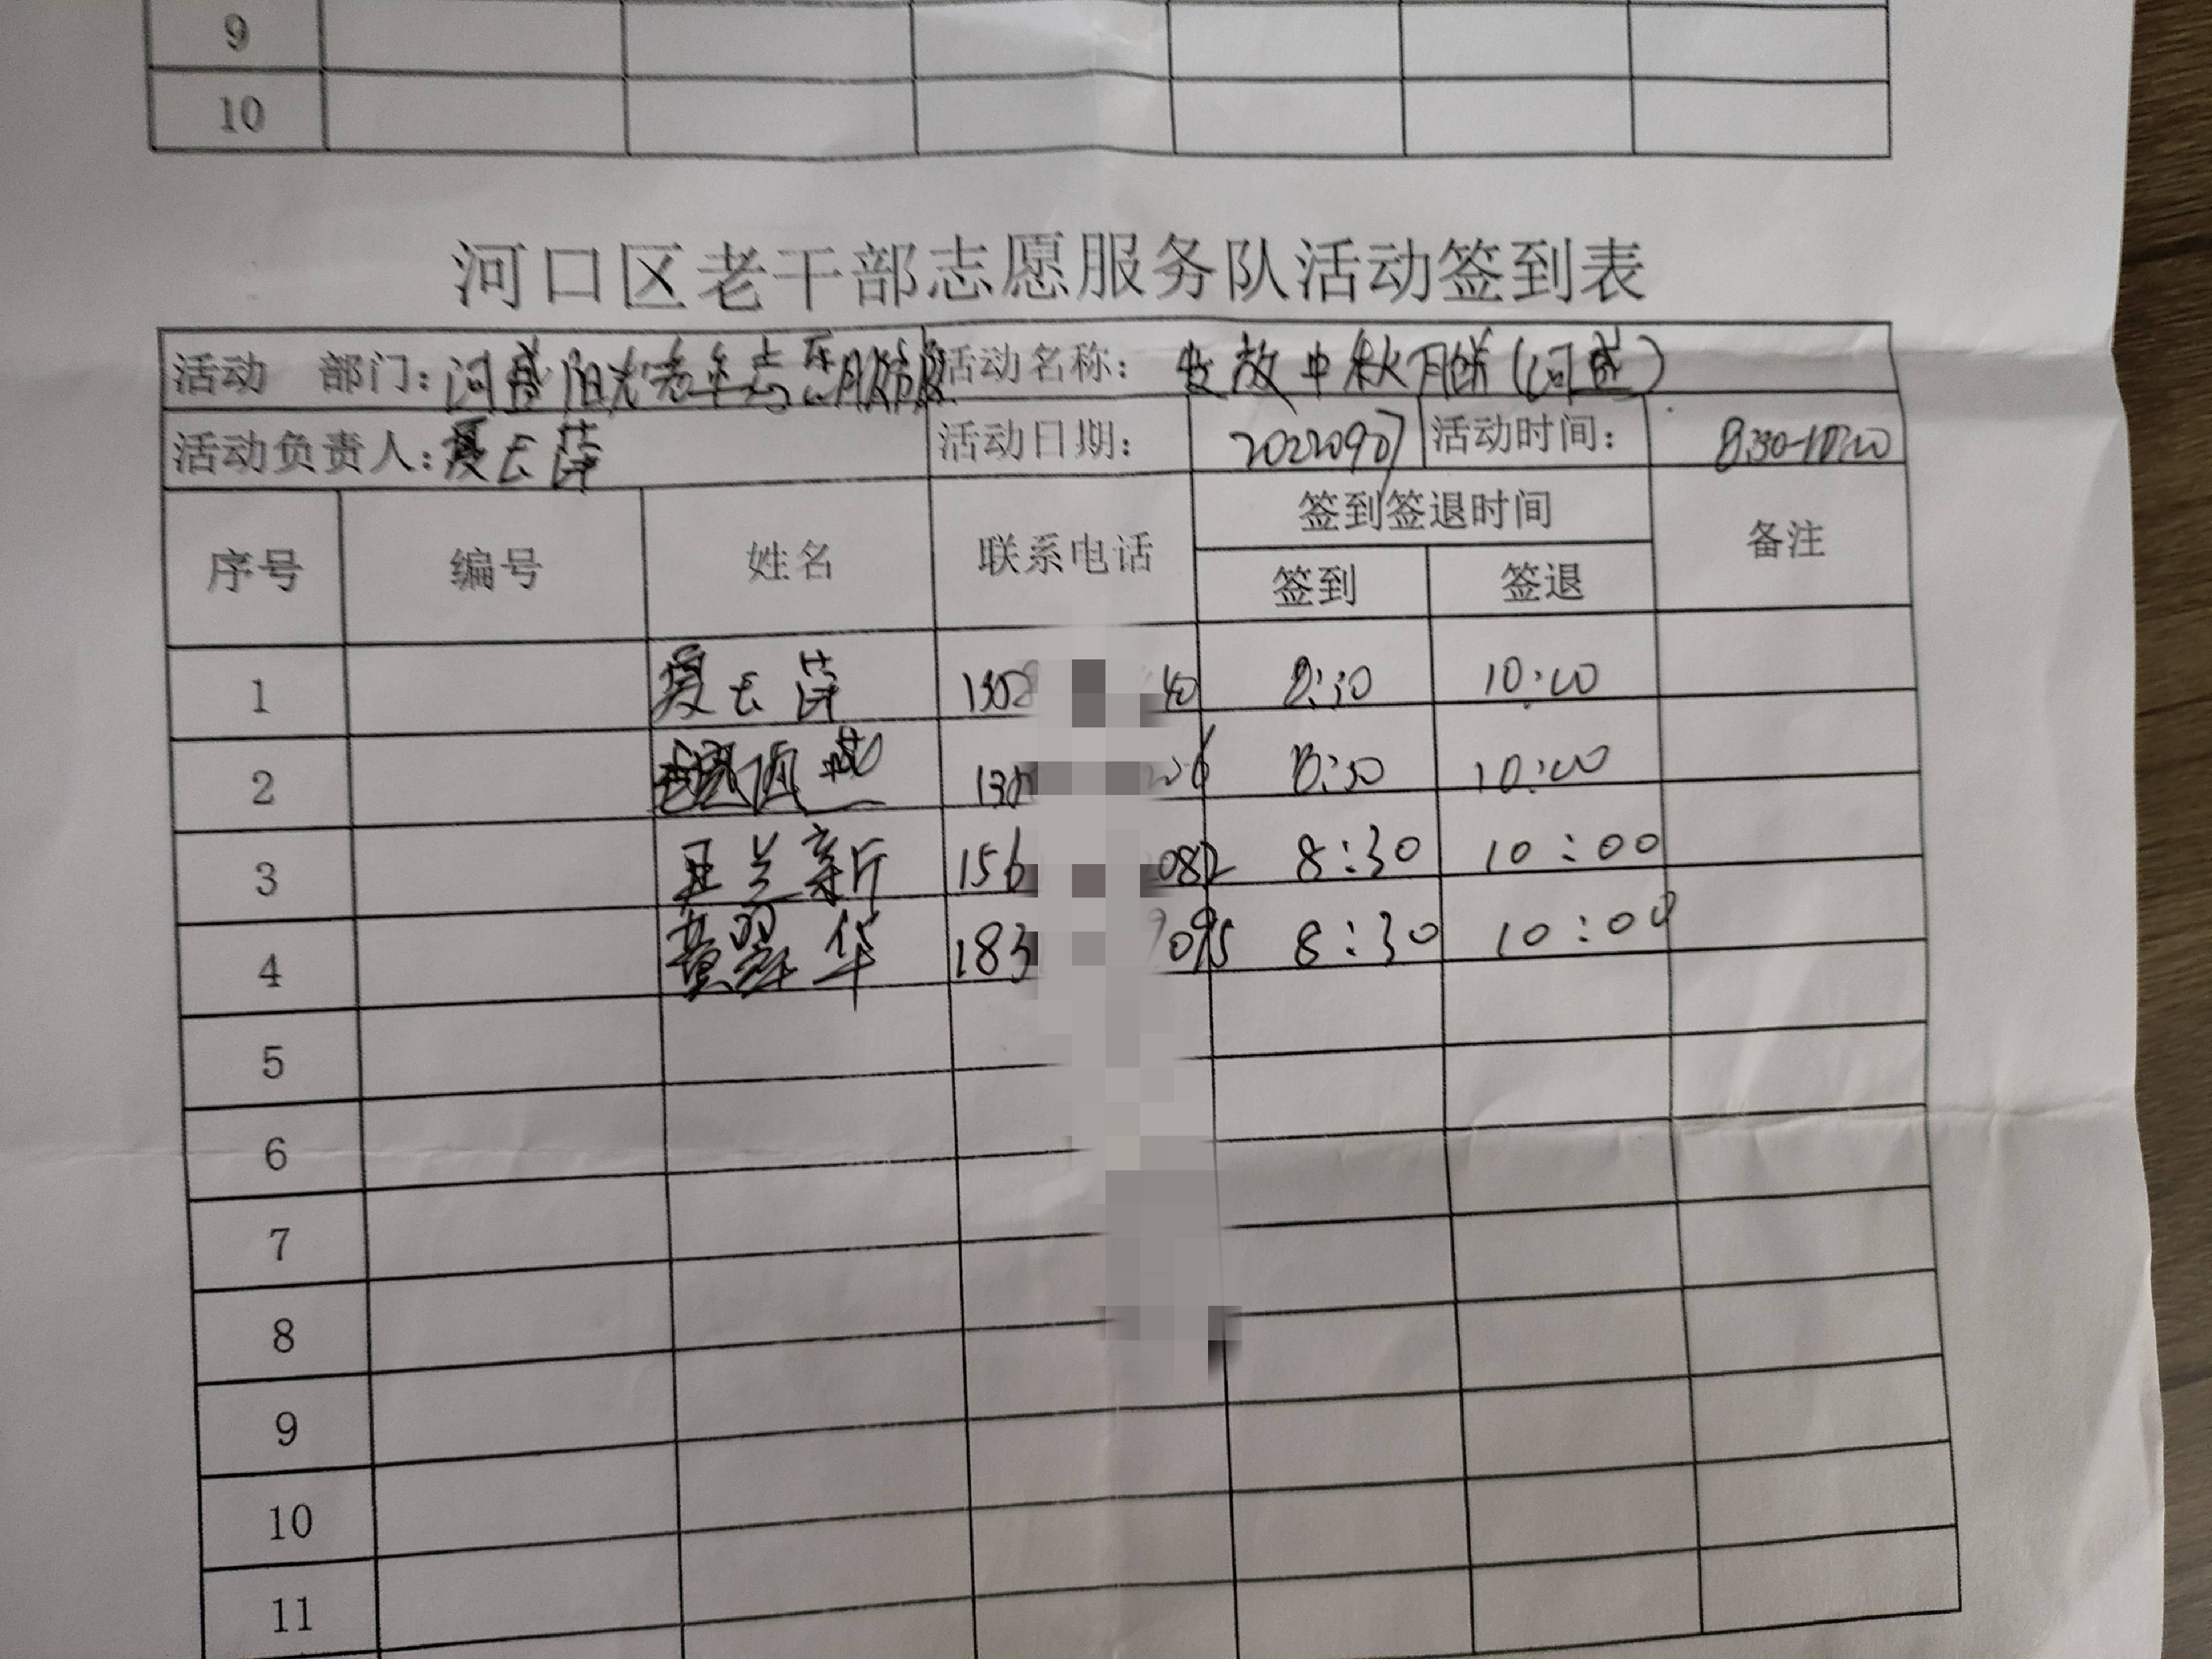 9
10
河口区老干部志愿服务队活动签到表
活动 部门: 河盛阳光老年志愿服务队 活动名称: 发放中秋月饼(河盛)
活动负责人: 夏玉萍 活动日期: 20220907 活动时间: 8:30-10:00
序号 编号 姓名 联系电话 签到签退时间 备注
签到 签退
1 夏玉萍 8:30 10:00
2 8:30 10:00
3 兰新 156 082 8:30 10:00
4 黄翠华 183 9095 8:30 10:00
5
6
7
8
9
10
11